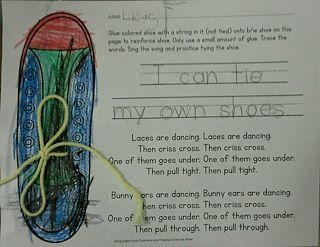 NAME
Glue colored shoe with a string in it (not tied) onto b/w shoe on this
page to reinforce shoe. Only use a small amount of glue. Trace the
words. Sing the song and practice tying the shoe.
I can tie
my own shoes
Laces are dancing. Laces are dancing.
Then criss cross. Then criss cross.
One of them goes under. One of them goes under.
Then pull tight. Then pull tight.
Bunny ears are dancing. Bunny ears are dancing.
Then criss cross. Then criss cross.
One of them goes under. One of them goes under.
Then pull through. Then pull through.